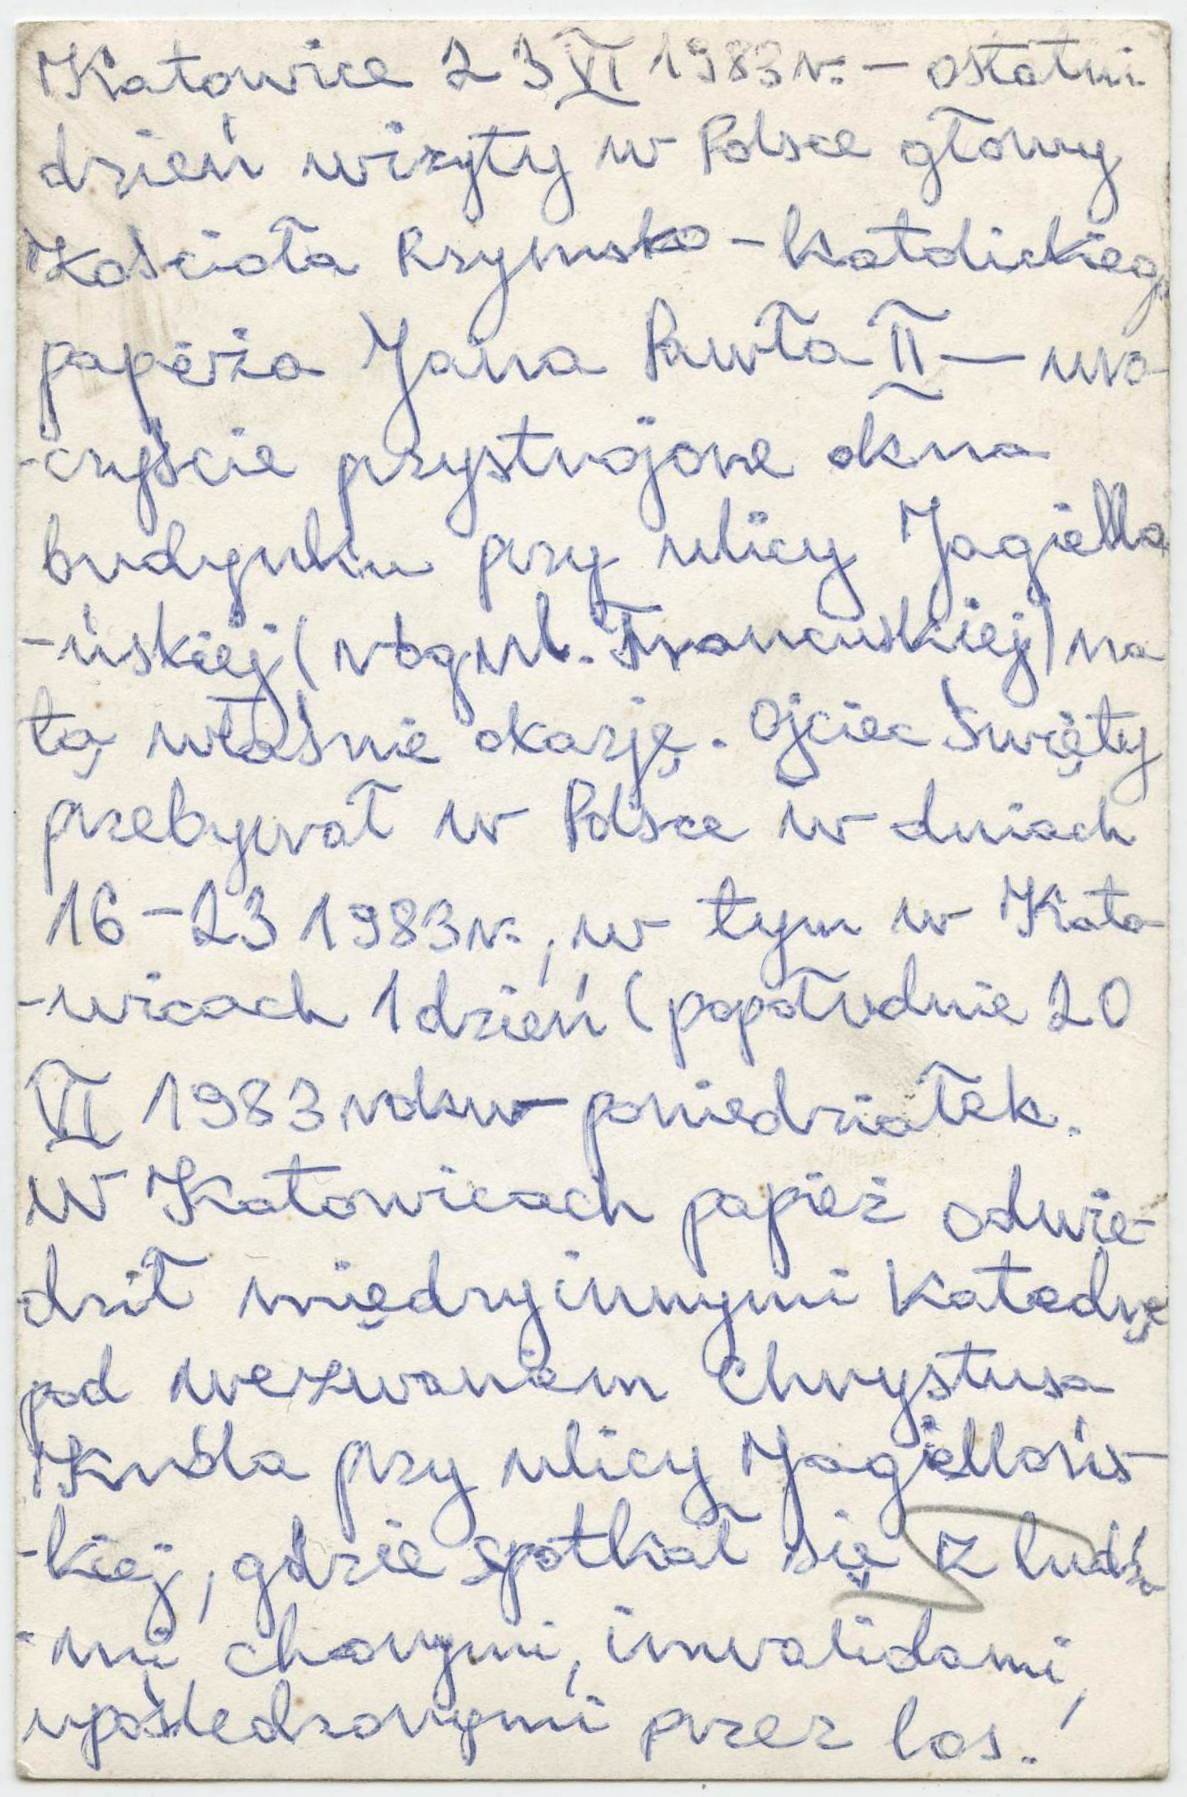 Katowice 23 VI 1983r. – ostatni
dzień wizyty w Polsce głowy
Kościoła Rzymsko-katolickiego
papieża Jana Pawła II – uro-
-czyście przystrojone okna
budynku przy ulicy Jagiello
-ńskiej (róg ul. Francuskiej) na
tą właśnie okazję. Ojciec Święty
przebywał w Polsce w dniach
16-23 1983r., w tym w Kato-
-wicach 1 dzień (popołudnie 20
VI 1983r poniedziałek.
W Katowicach papież odwie-
dził międzyinnymi Katedrę
pod wezwaniem Chrystusa
Króla przy ulicy Jagiellońs-
-kiej, gdzie spotkał się z ludź-
-mi chorymi, inwalidami,
upośledzonymi przez los.